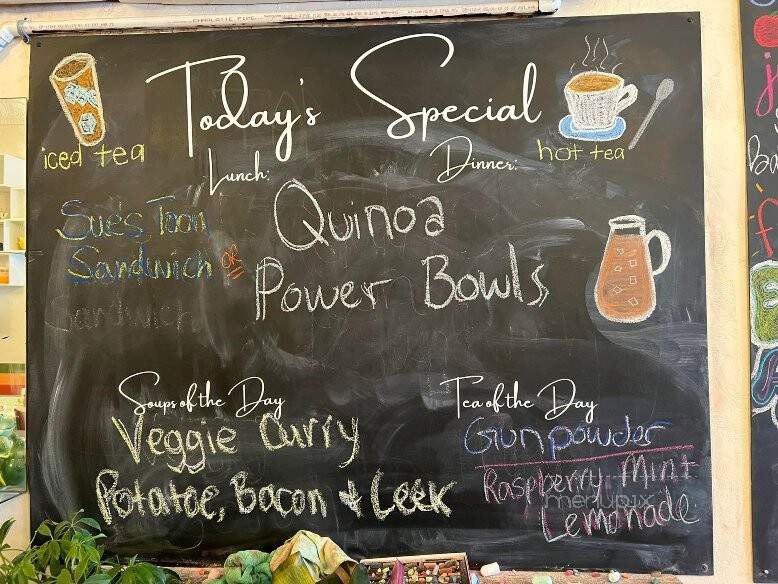 Today's Special
iced tea
hot tea
Lunch:
Dinner:
Sue's Toon
Sandwich
OR
Quinoa
Power Bowls
Sandwich
Soups of the Day
Veggie Curry
Potatoe, Bacon & Leek
Tea of the Day
Gunpowder
Raspberry Mint
Lemonade
menupix